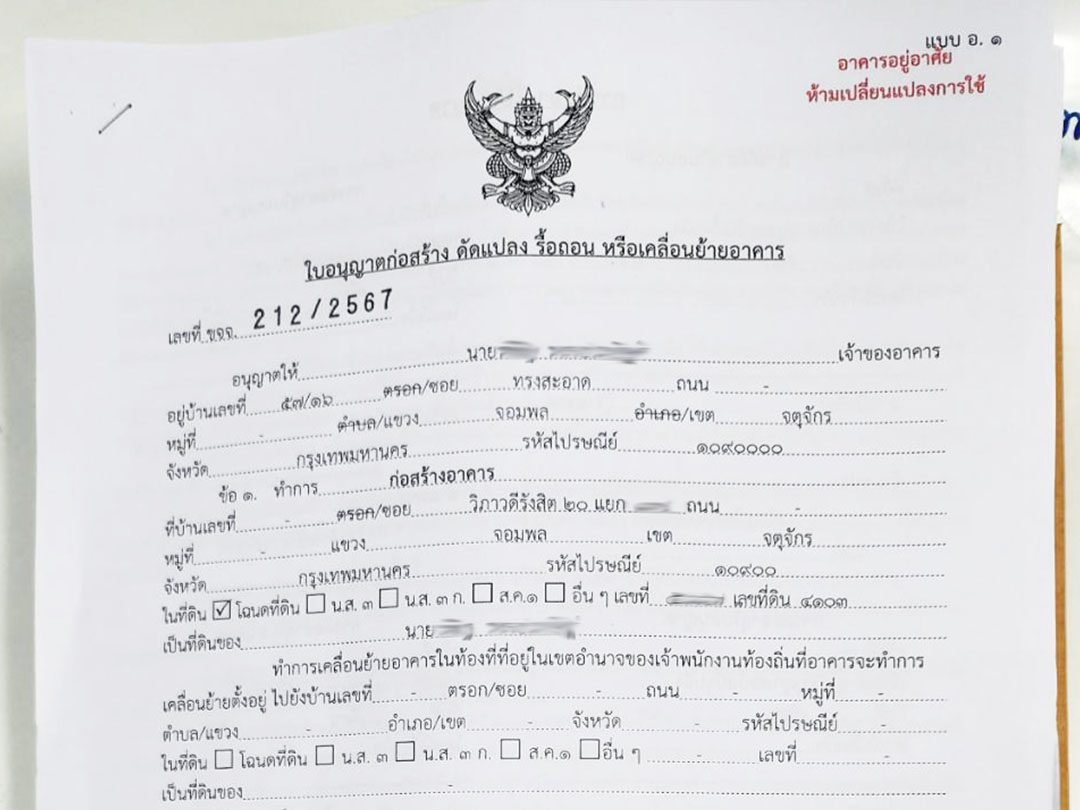 แบบ อ. ๑
อาคารอยู่อาศัย
ห้ามเปลี่ยนแปลงการใช้
ใบอนุญาตก่อสร้าง ดัดแปลง รื้อถอน หรือเคลื่อนย้ายอาคาร
เลขที่ ขจจ. 212/2567
อนุญาตให้ นาย เจ้าของอาคาร
อยู่บ้านเลขที่ ๕๗/๑๖ ตรอก/ซอย ทรงสะอาด ถนน -
หมู่ที่ - ตำบล/แขวง จอมพล อำเภอ/เขต จตุจักร
จังหวัด กรุงเทพมหานคร รหัสไปรษณีย์ ๑๐๙๐๐๐๐
ข้อ ๑. ทำการ ก่อสร้างอาคาร
ที่บ้านเลขที่ - ตรอก/ซอย วิภาวดีรังสิต ๒๐ แยก ถนน -
หมู่ที่ - แขวง จอมพล เขต จตุจักร
จังหวัด กรุงเทพมหานคร รหัสไปรษณีย์ ๑๐๙๐๐
ในที่ดิน ☑ โฉนดที่ดิน ☐ น.ส. ๓ ☐ น.ส. ๓ ก. ☐ ส.ค.๑ ☐ อื่น ๆ เลขที่ เลขที่ดิน ๔๑๐๓
เป็นที่ดินของ นาย
ทำการเคลื่อนย้ายอาคารในท้องที่ที่อยู่ในเขตอำนาจของเจ้าพนักงานท้องถิ่นที่อาคารจะทำการ
เคลื่อนย้ายตั้งอยู่ ไปยังบ้านเลขที่ - ตรอก/ซอย - ถนน - หมู่ที่ -
ตำบล/แขวง - อำเภอ/เขต - จังหวัด - รหัสไปรษณีย์ -
ในที่ดิน ☐ โฉนดที่ดิน ☐ น.ส. ๓ ☐ น.ส. ๓ ก. ☐ ส.ค.๑ ☐ อื่น ๆ - เลขที่ -
เป็นที่ดินของ -